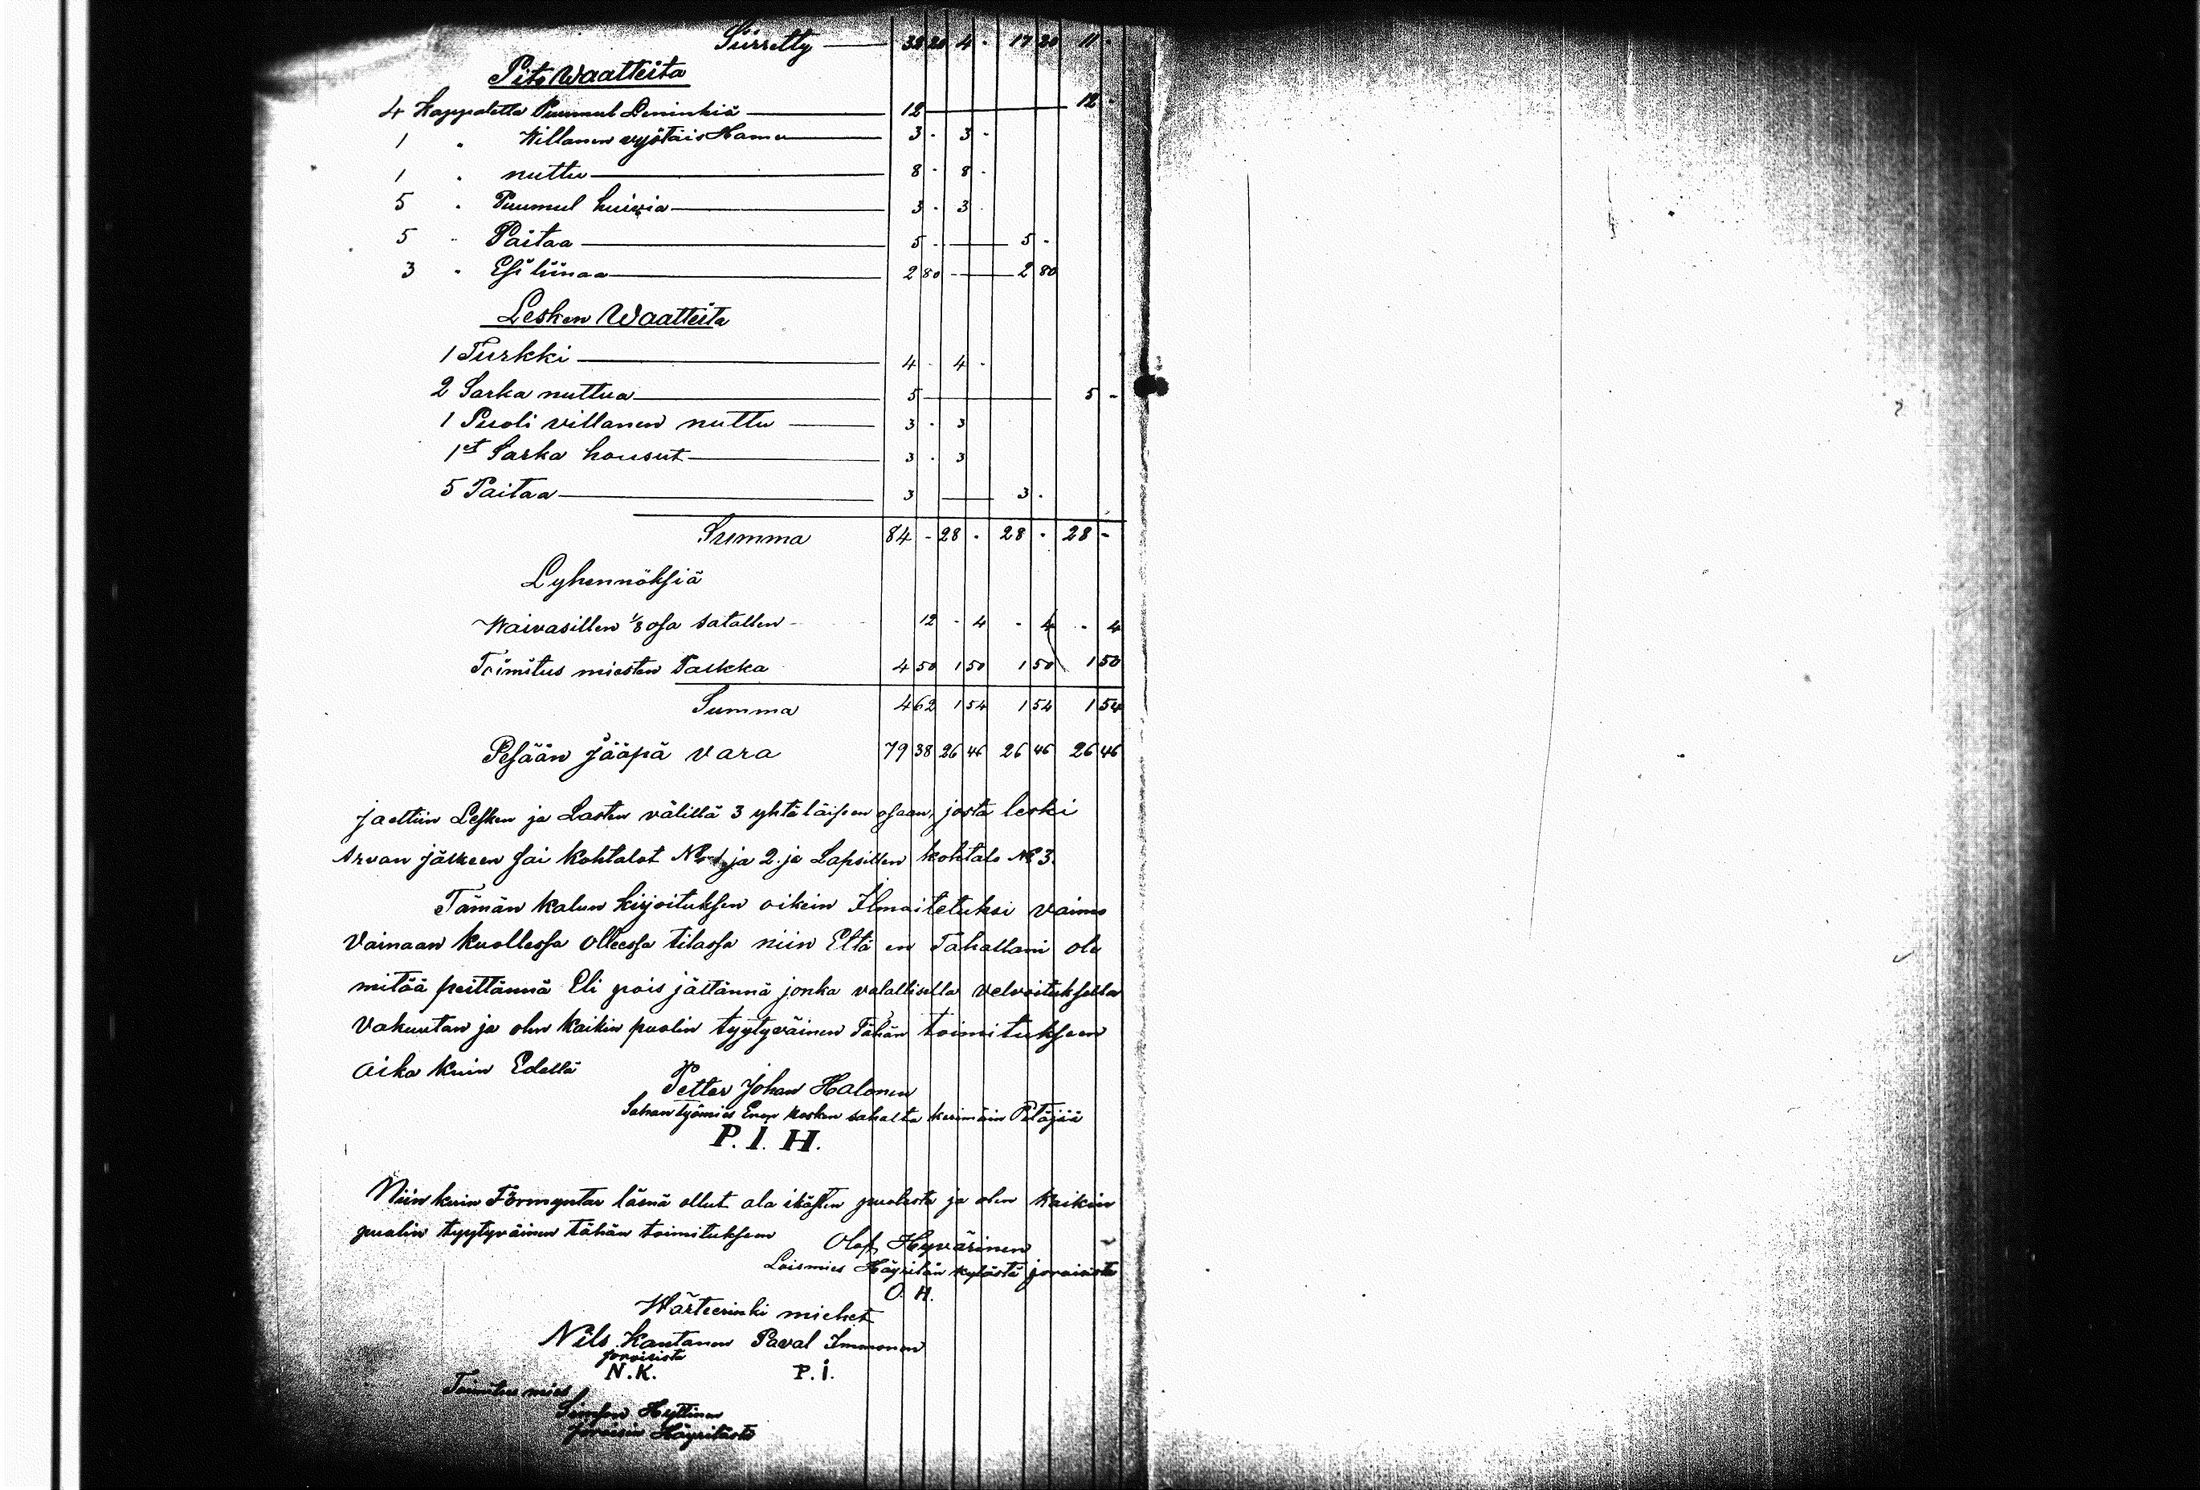 Siirretty — 32 20 4 - 17 20 11 -
Pito Waatteita
4 Kappaletta Puumul Leninkiä — 12 — 12 -
1 " Willanen vyötäis Hame — 3 - 3 -
1 " nuttu — 8 - 8 -
5 " Puumul huivia — 3 - 3
5 " Paitaa — 5 - — 5 -
3 " Esiliinaa — 2 80 — 2 80
Lesken Waatteita
1 Turkki — 4 - 4 -
2 Sarka nuttua — 5 — 5 -
1 Puoli villanen nuttu — 3 - 3
1et Sarka housut — 3 - 3
5 Paitaa — 3 — 3 -
Summa 84 - 28 - 28 - 28 -
Lyhennöksiä
Waivasillen 1/8 osa satallen - 12 - 4 - 4 - 4
Toimitus miesten Palkka 4 50 1 50 1 50 1 50
Summa 4 62 1 54 1 54 1 54
Pesään Jääpä vara 79 38 26 46 26 46 26 46
jaettiin Lesken ja Lasten välillä 3 yhtäläiseen osaan, josta leski
Arvan jälkeen sai kohtalot No 1 ja 2. ja Lapsillen kohtalo No 3.
Tämän kalun kirjoituksen oikein Ilmoitetuksi vaimo
Vainaan kuollessa olleessa tilassa niin Että en Tahallani ole
mitää peittännä Eli pois jättännä jonka valallisella velvoituksella
Vakuutan ja olen kaikin puolin tyytyväinen Tähän toimitukseen
Aika kuin Edellä
Petter Johan Halonen
Sahan työmies Enon kosken sahalta kerimäin Pitäjää
P. I. H.
Niin kuin Förmyntär läsnä ollut ala ikästen puolesta ja olen kaikin
puolin tyytyväinen tähän toimitukseen
Olof Hyvärinen
Loismies Häyrilän kylästä joroisista
O. H.
Wärteerinki miehet
Nils Kautanen Paval Immonen
joroisista
N. K. P. I.
Toimitus mies
Simon Hyttinen
joroisin Häyrilästä